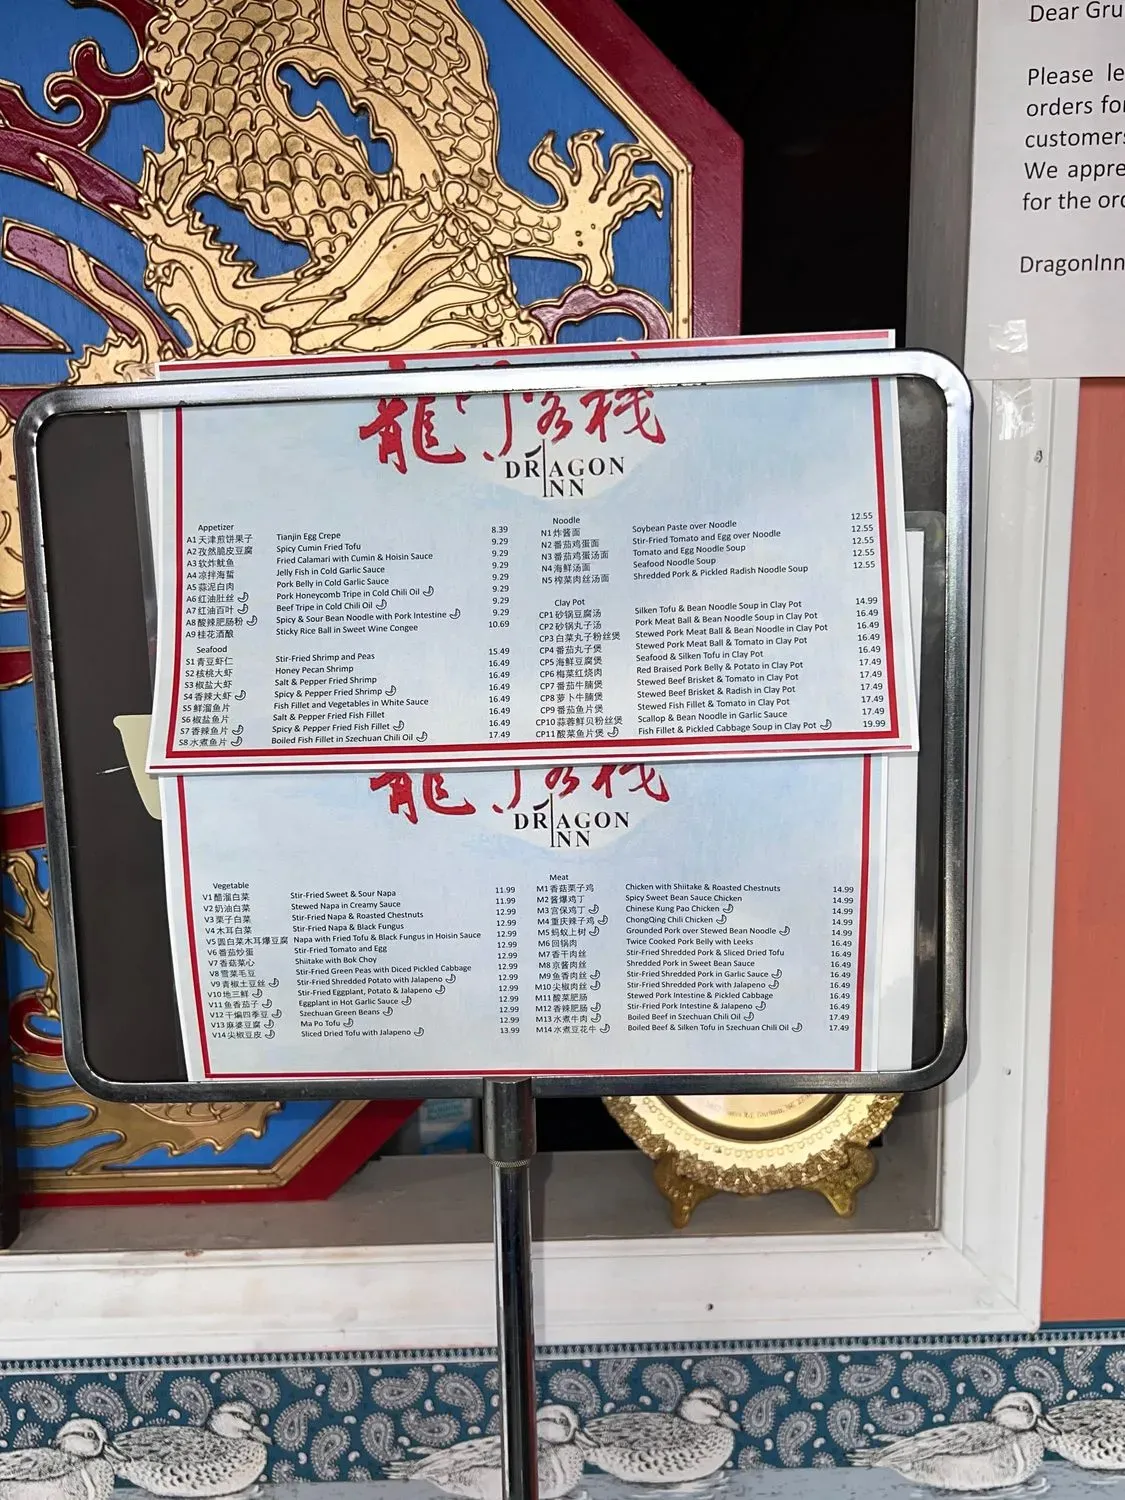 Dear Gru
Please le
orders for
customers
We appre
for the ord
DragonInn
龍门客栈
DRAGON
INN
Appetizer
A1 天津煎饼果子 Tianjin Egg Crepe 8.39
A2 孜然脆皮豆腐 Spicy Cumin Fried Tofu 9.29
A3 软炸鱿鱼 Fried Calamari with Cumin & Hoisin Sauce 9.29
A4 凉拌海蜇 Jelly Fish in Cold Garlic Sauce 9.29
A5 蒜泥白肉 Pork Belly in Cold Garlic Sauce 9.29
A6 红油肚丝 Pork Honeycomb Tripe in Cold Chili Oil 9.29
A7 红油百叶 Beef Tripe in Cold Chili Oil 9.29
A8 酸辣肥肠粉 Spicy & Sour Bean Noodle with Pork Intestine 9.29
A9 桂花酒酿 Sticky Rice Ball in Sweet Wine Congee 10.69
Seafood
S1 青豆虾仁 Stir-Fried Shrimp and Peas 15.49
S2 核桃大虾 Honey Pecan Shrimp 16.49
S3 椒盐大虾 Salt & Pepper Fried Shrimp 16.49
S4 香辣大虾 Spicy & Pepper Fried Shrimp 16.49
S5 鲜溜鱼片 Fish Fillet and Vegetables in White Sauce 16.49
S6 椒盐鱼片 Salt & Pepper Fried Fish Fillet 16.49
S7 香辣鱼片 Spicy & Pepper Fried Fish Fillet 16.49
S8 水煮鱼片 Boiled Fish Fillet in Szechuan Chili Oil 17.49
Noodle
N1 炸酱面 Soybean Paste over Noodle 12.55
N2 番茄鸡蛋面 Stir-Fried Tomato and Egg over Noodle 12.55
N3 番茄鸡蛋汤面 Tomato and Egg Noodle Soup 12.55
N4 海鲜汤面 Seafood Noodle Soup 12.55
N5 榨菜肉丝汤面 Shredded Pork & Pickled Radish Noodle Soup 12.55
Clay Pot
CP1 砂锅豆腐汤 Silken Tofu & Bean Noodle Soup in Clay Pot 14.99
CP2 砂锅丸子汤 Pork Meat Ball & Bean Noodle Soup in Clay Pot 16.49
CP3 白菜丸子粉丝煲 Stewed Pork Meat Ball & Bean Noodle in Clay Pot 16.49
CP4 番茄丸子煲 Stewed Pork Meat Ball & Tomato in Clay Pot 16.49
CP5 海鲜豆腐煲 Seafood & Silken Tofu in Clay Pot 16.49
CP6 梅菜红烧肉 Red Braised Pork Belly & Potato in Clay Pot 17.49
CP7 番茄牛腩煲 Stewed Beef Brisket & Tomato in Clay Pot 17.49
CP8 萝卜牛腩煲 Stewed Beef Brisket & Radish in Clay Pot 17.49
CP9 番茄鱼片煲 Stewed Fish Fillet & Tomato in Clay Pot 17.49
CP10 蒜蓉鲜贝粉丝煲 Scallop & Bean Noodle in Garlic Sauce 17.49
CP11 酸菜鱼片煲 Fish Fillet & Pickled Cabbage Soup in Clay Pot 19.99
龍门客栈
DRAGON
INN
Vegetable
V1 醋溜白菜 Stir-Fried Sweet & Sour Napa 11.99
V2 奶油白菜 Stewed Napa in Creamy Sauce 11.99
V3 栗子白菜 Stir-Fried Napa & Roasted Chestnuts 12.99
V4 木耳白菜 Stir-Fried Napa & Black Fungus 12.99
V5 圆白菜木耳爆豆腐 Napa with Fried Tofu & Black Fungus in Hoisin Sauce 12.99
V6 番茄炒蛋 Stir-Fried Tomato and Egg 12.99
V7 香菇菜心 Shiitake with Bok Choy 12.99
V8 雪菜毛豆 Stir-Fried Green Peas with Diced Pickled Cabbage 12.99
V9 青椒土豆丝 Stir-Fried Shredded Potato with Jalapeno 12.99
V10 地三鲜 Stir-Fried Eggplant, Potato & Jalapeno 12.99
V11 鱼香茄子 Eggplant in Hot Garlic Sauce 12.99
V12 干煸四季豆 Szechuan Green Beans 12.99
V13 麻婆豆腐 Ma Po Tofu 12.99
V14 尖椒豆皮 Sliced Dried Tofu with Jalapeno 13.99
Meat
M1 香菇栗子鸡 Chicken with Shiitake & Roasted Chestnuts 14.99
M2 酱爆鸡丁 Spicy Sweet Bean Sauce Chicken 14.99
M3 宫保鸡丁 Chinese Kung Pao Chicken 14.99
M4 重庆辣子鸡 ChongQing Chili Chicken 14.99
M5 蚂蚁上树 Grounded Pork over Stewed Bean Noodle 14.99
M6 回锅肉 Twice Cooked Pork Belly with Leeks 16.49
M7 香干肉丝 Stir-Fried Shredded Pork & Sliced Dried Tofu 16.49
M8 京酱肉丝 Shredded Pork in Sweet Bean Sauce 16.49
M9 鱼香肉丝 Stir-Fried Shredded Pork in Garlic Sauce 16.49
M10 尖椒肉丝 Stir-Fried Shredded Pork with Jalapeno 16.49
M11 酸菜肥肠 Stewed Pork Intestine & Pickled Cabbage 16.49
M12 香辣肥肠 Stir-Fried Pork Intestine & Jalapeno 16.49
M13 水煮牛肉 Boiled Beef in Szechuan Chili Oil 17.49
M14 水煮豆花牛 Boiled Beef & Silken Tofu in Szechuan Chili Oil 17.49